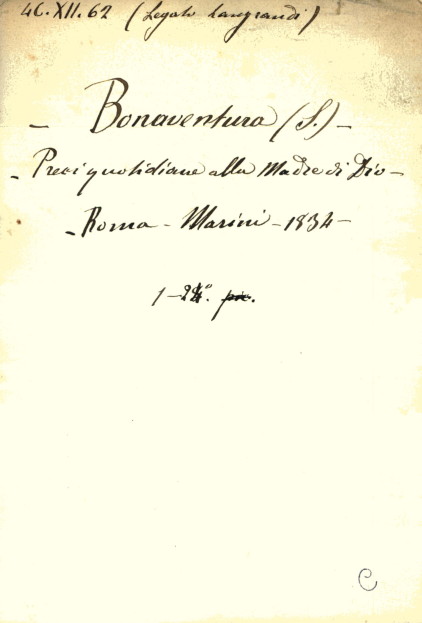 46.XII.62 (Legato Sangrandi)
– Bonaventura (S.) –
– Preci quotidiane alla Madre di Dio –
– Roma – Marini – 1834 –
1 – 24°.
C